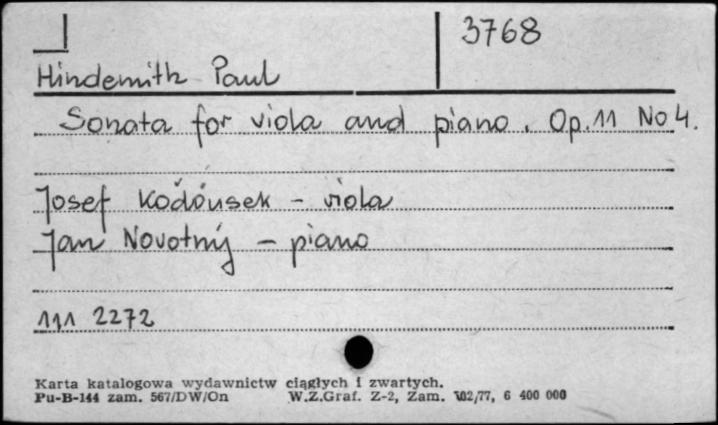 3768
Hindemith Paul
Sonata for viola and piano. Op.11 No 4.
Josef Koďousek - viola
Jan Novotný - piano
111 2272
Karta katalogowa wydawnictw ciągłych i zwartych.
Pu-B-144 zam. 567/DW/On W.Z.Graf. Z-2, Zam. 702/77, 6 400 000